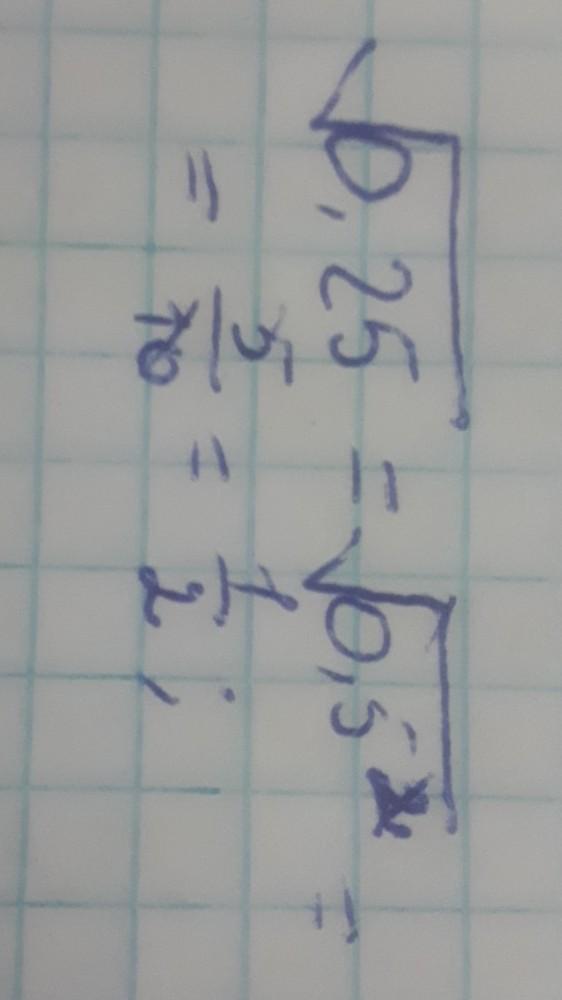 √0,25 = √0,5² =
= 5/10 = 1/2 ;